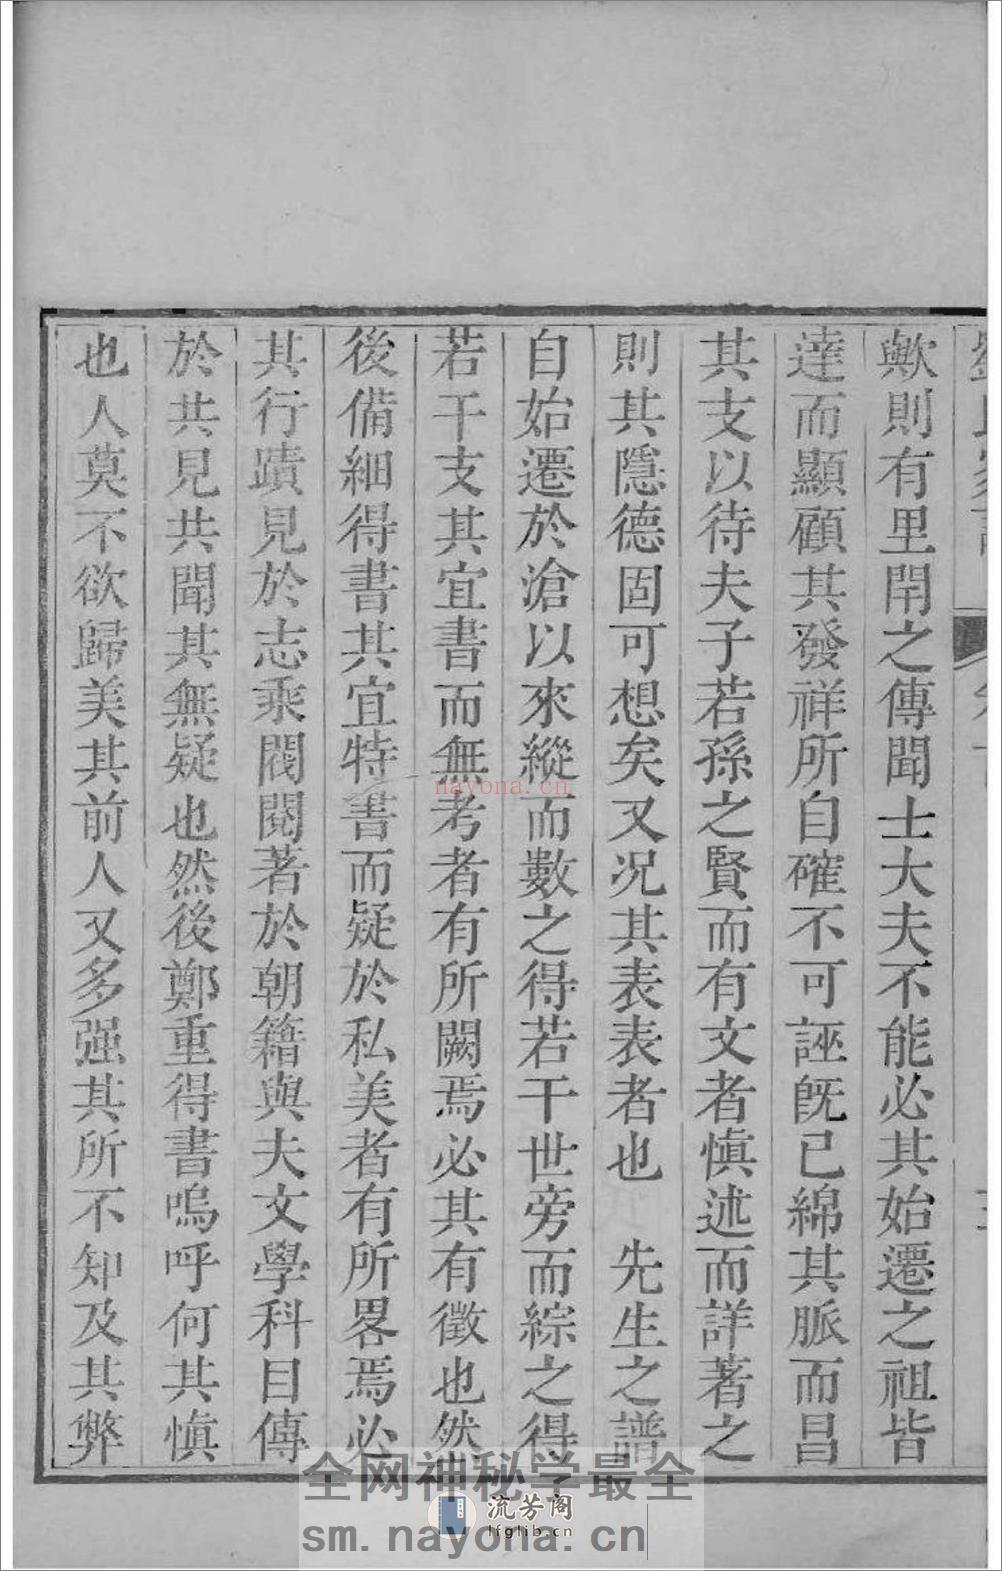 歟則有里閈之傳聞士大夫不能必其始遷之祖皆
達而顯顧其發祥所自確不可誣旣已綿其脈而昌
其支以待夫子若孫之賢而有文者愼述而詳著之
則其隱德固可想矣又况其表表者也 先生之譜
自始遷於滄以來縱而數之得若干世旁而綜之得
若干支其宜書而無考者有所闕焉必其有徵也然
後備細得書其宜特書而疑於私美者有所畧焉必
其行蹟見於志乘閥閱著於朝籍與夫文學科目傳
於共見共聞其無疑也然後鄭重得書嗚呼何其愼
也人莫不欲歸美其前人又多强其所不知及其弊
nayona.cn
全网神秘学最全
流芳阁
lfglib.cn
sm.nayona.cn